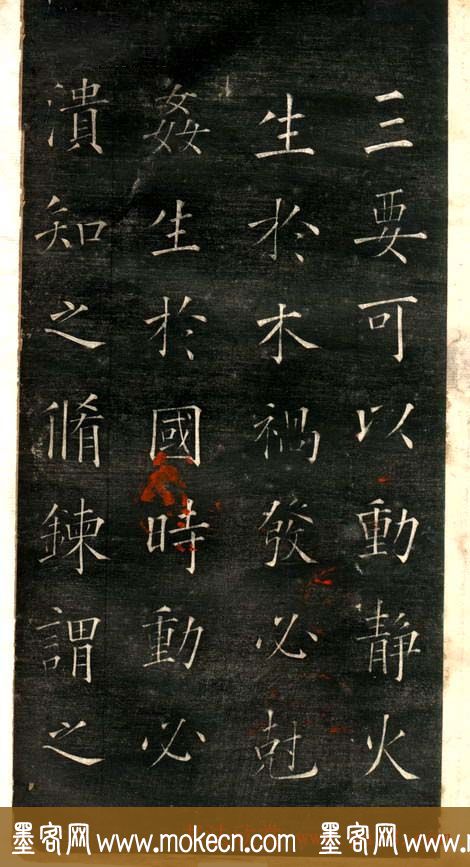 三要可以動靜火
生於木禍發必尅
姦生於國時動必
潰知之脩鍊謂之
墨客网 www.mokecn.com 墨客网 www.mokecn.com